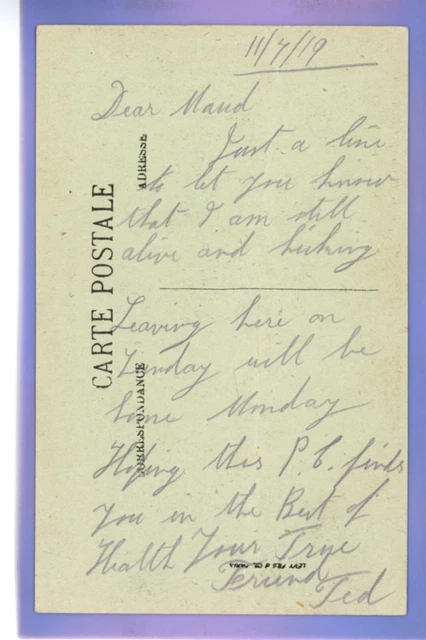 11/7/19
Dear Maud
Just a line
to let you know
that I am still
alive and kicking
Leaving here on
Sunday will be
home Monday
Hoping this P.C. finds
you in the Best of
Health Your True
Friend
Ted
CARTE POSTALE
ADRESSE
CORRESPONDANCE
LEVY FILS & Cie PARIS